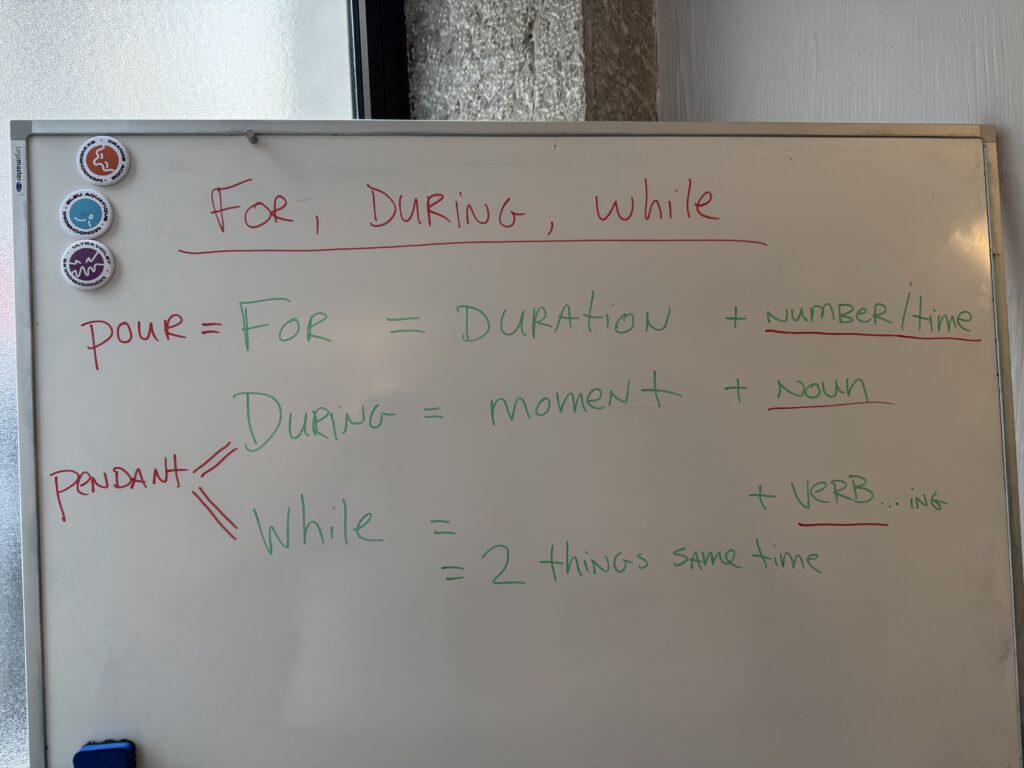 FOR, DURING, while
POUR = FOR = DURATION + NUMBER/time
DURING = moment + NOUN
PENDANT
+ VERB...ING
While =
= 2 things same time
legamaster
BLEU AQUATIQUE